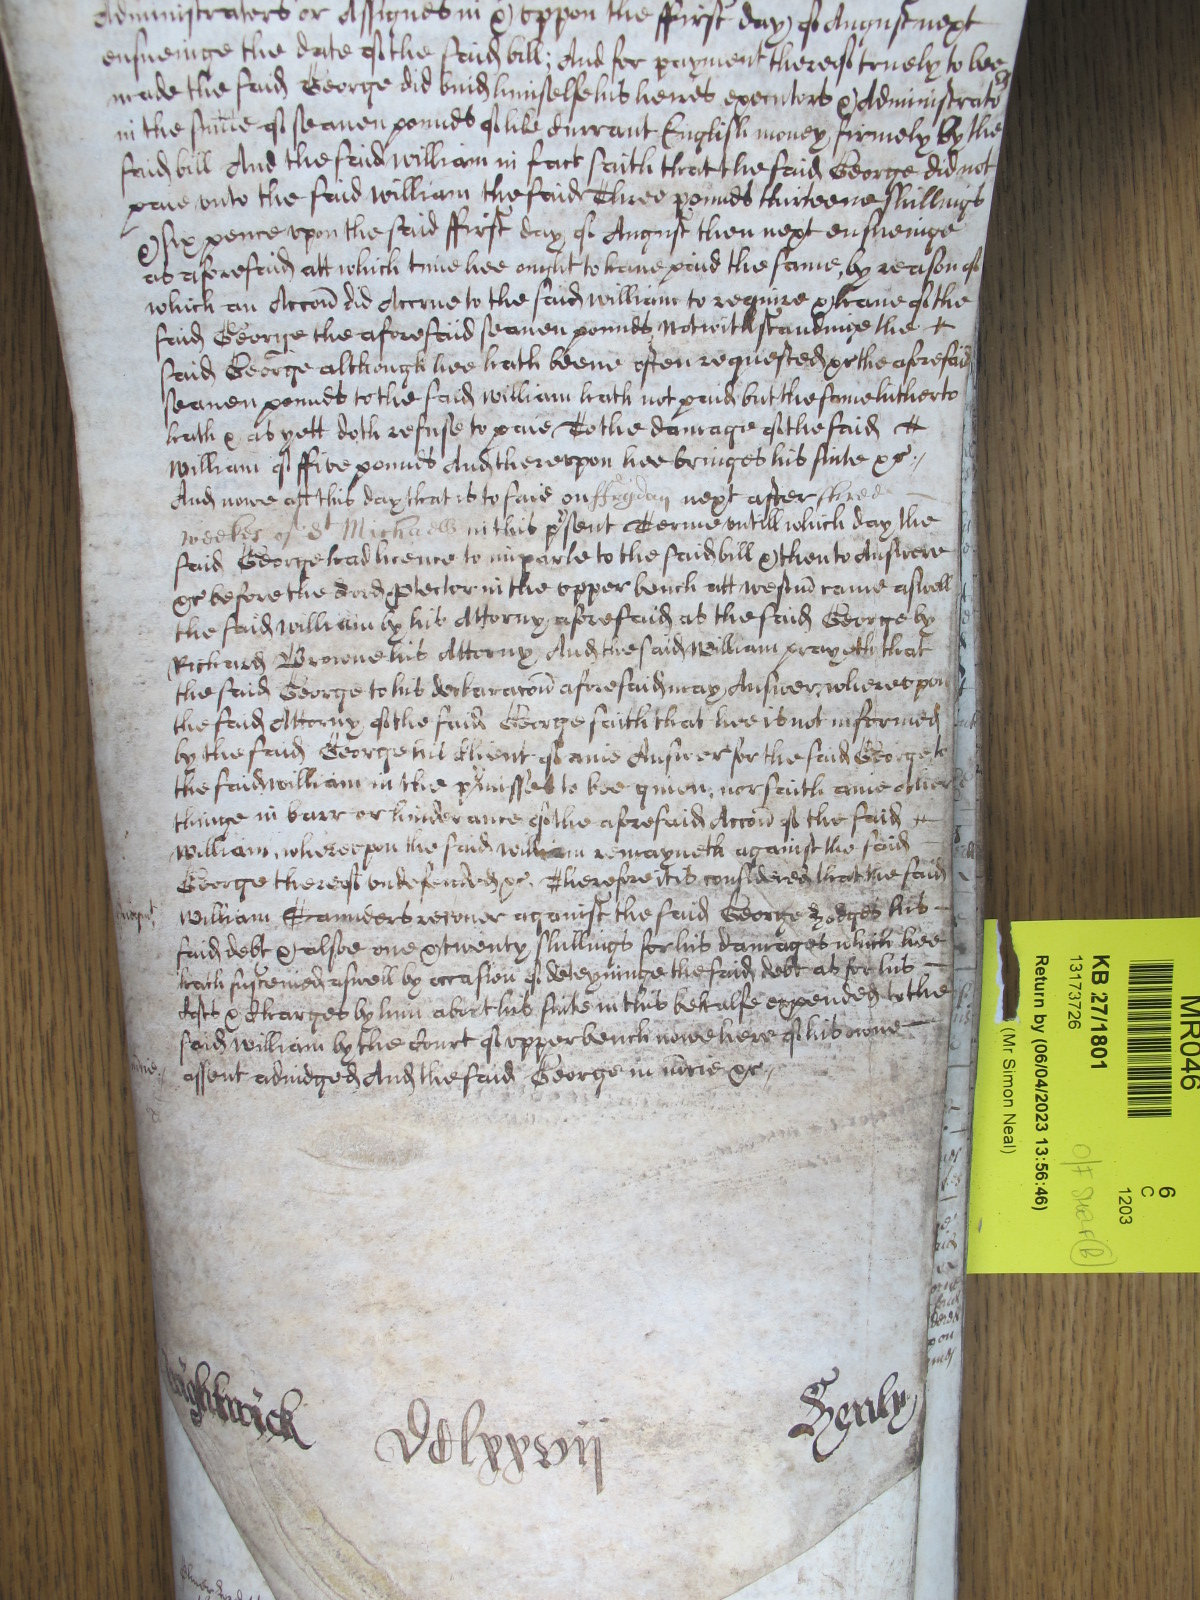 Administrators or Assignes in & uppon the ffirst day of August next
ensueinge the date of the said bill; And for payment thereof truely to bee
made the said George did bind himselfe his heires executors & Administrato
in the sume of seaven pounds of like Currant English money firmely by the
said bill And the said William in fact saith that the said George did not
paie unto the said William the said Three pounds thirteene shillings
& six pence upon the said ffirst day of August then next ensueinge
as aforesaid att which time hee ought to have paid the same, by reason of
which an Accon did Accrue to the said William to require & have of the
said George the aforesaid seaven pounds Notwithstandinge the
said George although hee hath beene often requested &c the aforesaid
seaven pounds to the said William hath not paid but the same hitherto
hath & as yett doth refuse to paie To the damage of the said
William of ffive pounds And thereupon hee bringes his suite &c
And nowe att this day that is to saie on ffryday next after three
weekes of St Michaell in this pr̃sent Terme untill which day the
said George had licence to imparle to the said bill & then to Answere
&c before the Lord Protector in the upper bench att Westm̃ came aswell
the said William by his Attorny aforesaid as the said George by
Richard Browne his Attorny And the said William prayeth that
the said George to his declaracon aforesaid may Answer, whereupon
the said Attorny of the said George saith that hee is not informed
by the said George his Client of anie Answer for the said George to
the said William in the pr̃misses to bee given, nor saith anie other
thinge in barr or hinderance of the aforesaid Accon of the said
William, whereupon the said William remayneth against the said
George thereof undefended &c. Therefore it is considered that the said
Judgmt
William Saunders recover against the said George Hodges his
said debt & alsoe one & twenty shillings for his damages which hee
hath susteined aswell by occasion of deteyninge the said debt as for his
Costs & Charges by him about his suite in this behalfe expended to the
said William by the Court of upper bench nowe here of his owne
assent adiudged And the said George in m̃cie &c
Broughwick
Dclxxvij
Henly
MR046
6
C
1203
KB 27/1801
13173726
Return by (06/04/2023 13:56:46)
(Mr Simon Neal)